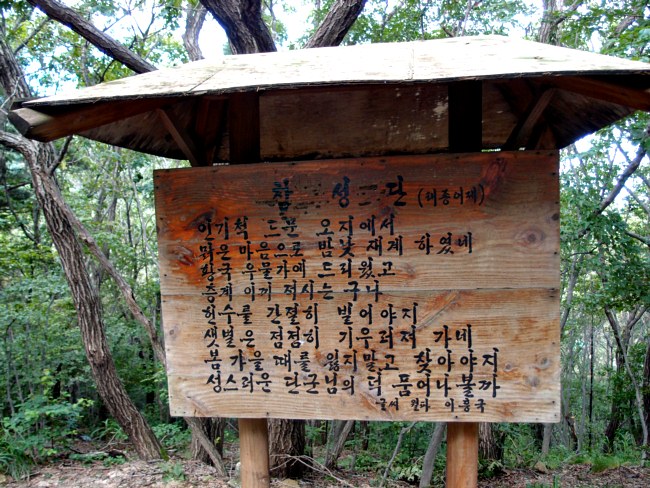 참성단 (태종어제)
인기척 드문 오지에서
맑은 마음으로 밤낮 재계 하였네
황국 우물가에 드리웠고
층계 이끼 적시는구나
허수를 간절히 빌어야지
샛별은 점점히 기우러져 가네
봄 가을 때를 잃지말고 찾아야지
성스러운 단군님의 덕 품어나볼까
글씨 이흥국